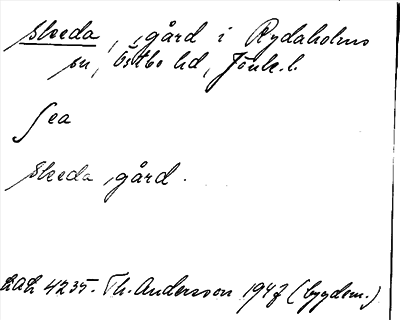 Skeda, gård i Rydaholms
sn, Östbo hd, Jönk. l.
Sea
Skeda gård.
LAL 4235. Th. Andersson 1947 (bygdem.)